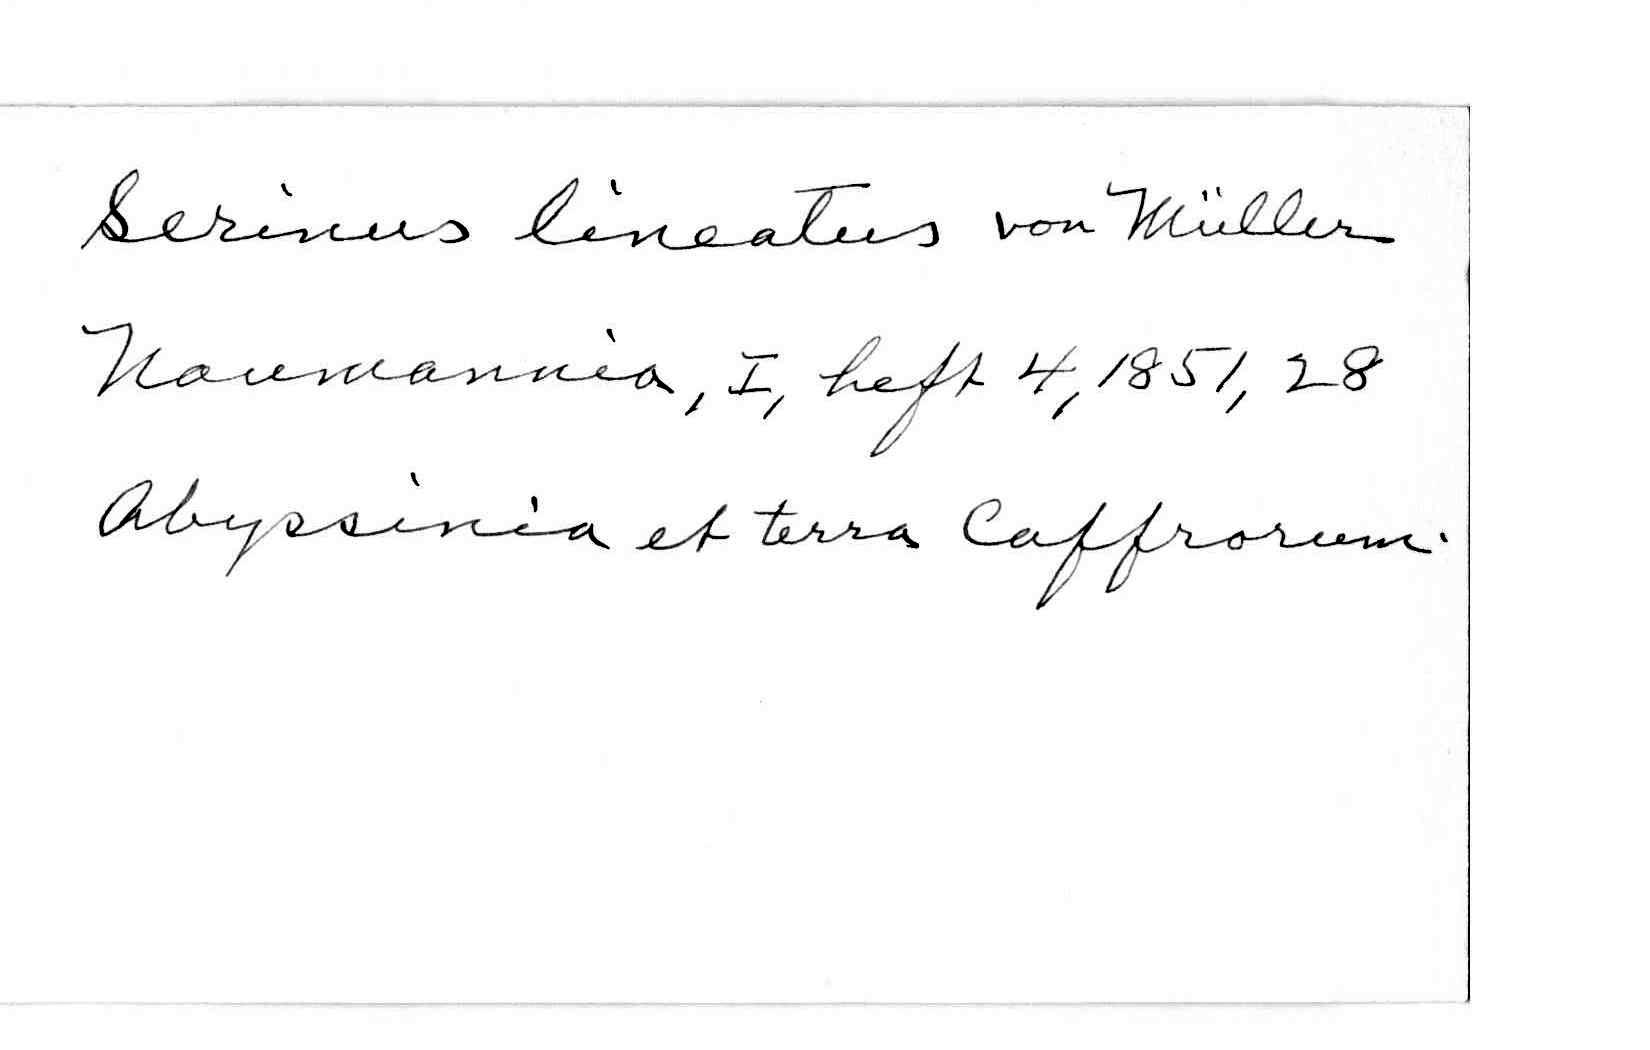 Serinus lineatus von Müller
Naumannia, I, heft 4, 1851, 28
Abyssinia et terra Caffrorum.